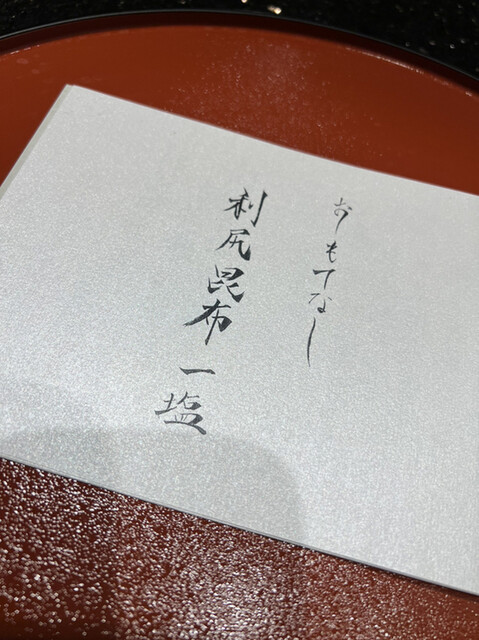 おもてなし
利尻昆布 一塩